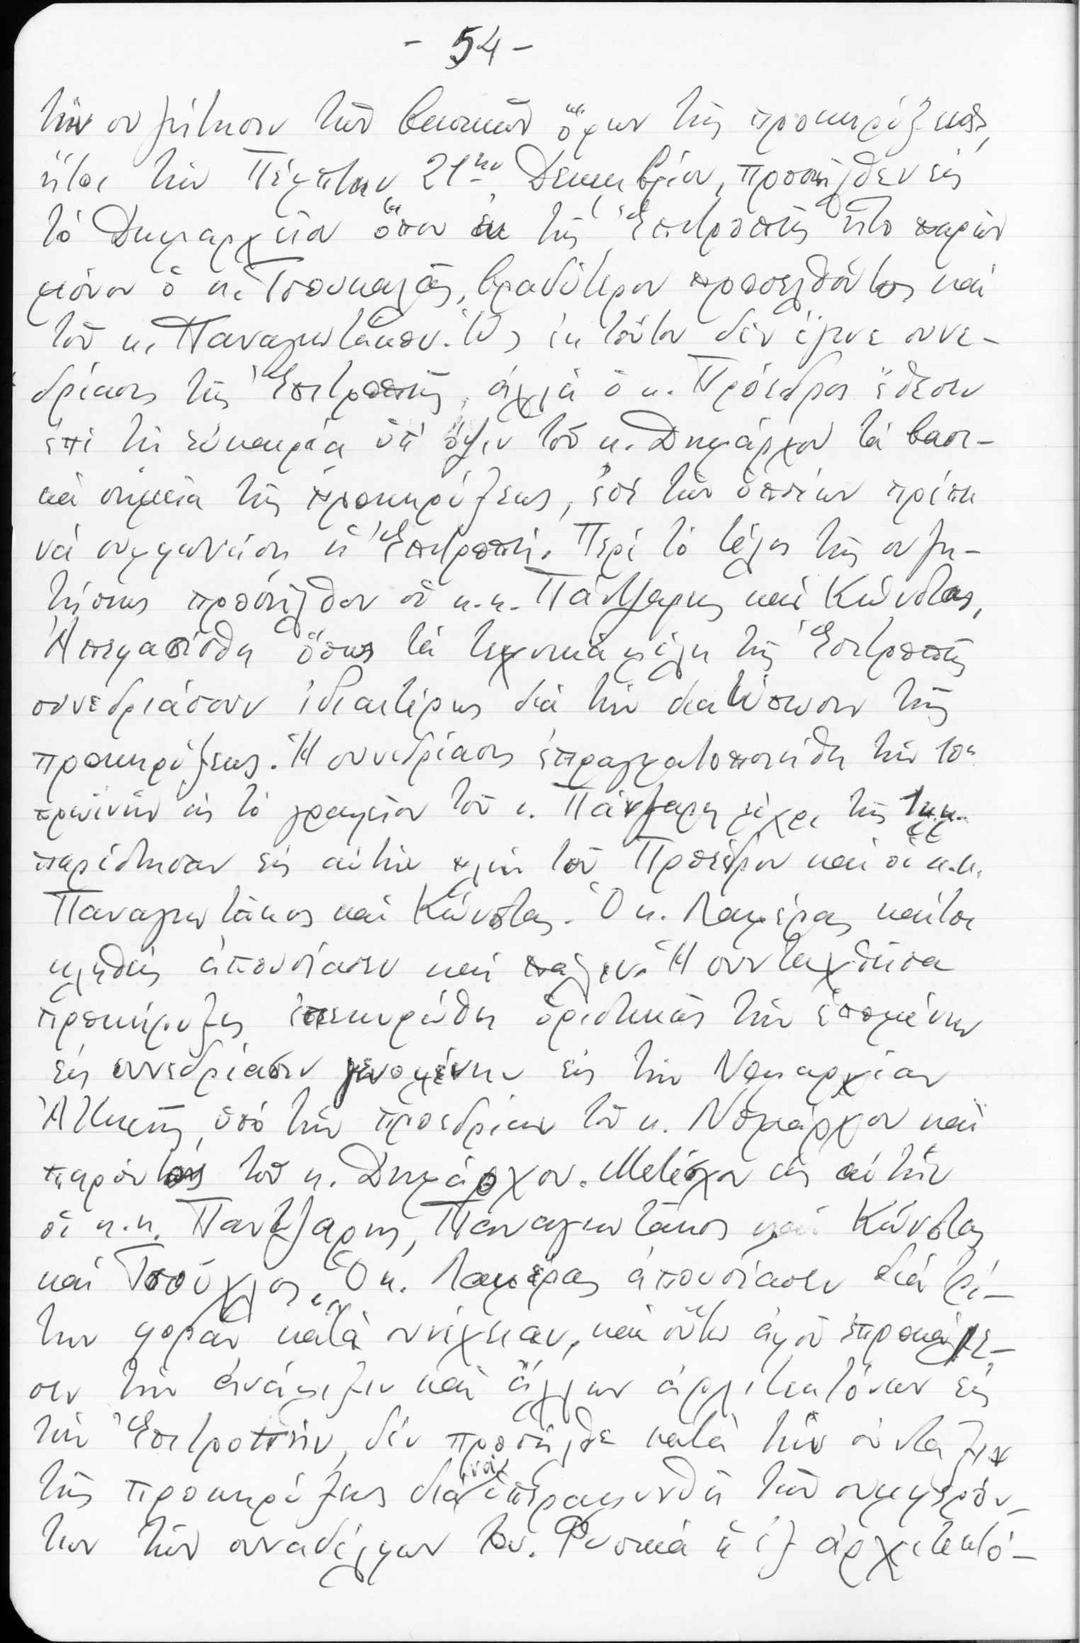 - 54 -
τὴν συζήτησιν τῶν βασικῶν ὅρων τῆς προκηρύξεως,
ἤτοι τὴν Πέμπτην 21ην Δεκεμβρίου, προσῆλθεν εἰς
τὸ Δημαρχεῖον ὅπου ἐκ τῆς Ἐπιτροπῆς ἦτο παρὼν
μόνον ὁ κ. Τσουκαλᾶς, βραδύτερον προσελθόντος καὶ
τοῦ κ. Παναγιωτάκου. Ὡς ἐκ τούτου δὲν ἔγινε συνε-
δρίασις τῆς Ἐπιτροπῆς, ἀλλὰ ὁ κ. Πρόεδρος ἔθεσεν
ἐπὶ τῇ εὐκαιρίᾳ ὑπ' ὄψιν τοῦ κ. Δημάρχου τὰ βασι-
κὰ σημεῖα τῆς προκηρύξεως, ἐπὶ τῶν ὁποίων πρέπει
νὰ συμφωνήσῃ ἡ Ἐπιτροπή. Περὶ τὸ τέλος τῆς συζη-
τήσεως προσῆλθον οἱ κ.κ. Πάντζαρης καὶ Κώνστας,
Ἀπεφασίσθη ὅπως τὰ τεχνικὰ μέλη τῆς Ἐπιτροπῆς
συνεδριάσουν ἰδιαιτέρως διὰ τὴν διατύπωσιν τῆς
προκηρύξεως. Ἡ συνεδρίασις ἐπραγματοποιήθη τὴν
πρωϊνὴν εἰς τὸ γραφεῖον τοῦ κ. Πάντζαρη μέχρι τῆς
παρέστησαν εἰς αὐτὴν πλὴν τοῦ Προέδρου καὶ οἱ κ.κ.
Παναγιωτάκος καὶ Κώνστας. Ὁ κ. Λαμέρας καίτοι
κληθεὶς ἀπουσίασεν καὶ πάλιν. Ἡ συνταχθεῖσα
προκήρυξις ἐπεκυρώθη ὁριστικῶς τὴν ἑπομένην
εἰς συνεδρίασιν γενομένην εἰς τὴν Νομαρχίαν
Ἀττικῆς, ὑπὸ τὴν προεδρίαν τοῦ κ. Νομάρχου καὶ
παρόντος τοῦ κ. Δημάρχου. Μετέσχον εἰς αὐτὴν
οἱ κ.κ. Παντζαρης, Παναγιωτάκος καὶ Κώνστας
καὶ Τσούχλος. Ὁ κ. Λαμέρας ἀπουσίασεν διὰ τρί-
την φορὰν κατὰ συνέχειαν, καὶ οὕτω ἀφοῦ ἐπροκάλε-
σεν τὴν ἀνάμιξιν καὶ ἄλλων ἀρχιτεκτόνων εἰς
τὴν Ἐπιτροπὴν, δὲν προσῆλθε κατὰ τὴν σύνταξιν
τῆς προκηρύξεως διὰ νὰ ὑπεραμυνθῇ τῶν συμφερόν-
των τῶν συναδέλφων του. Φυσικὰ ἡ ἐξ ἀρχιτεκτό-